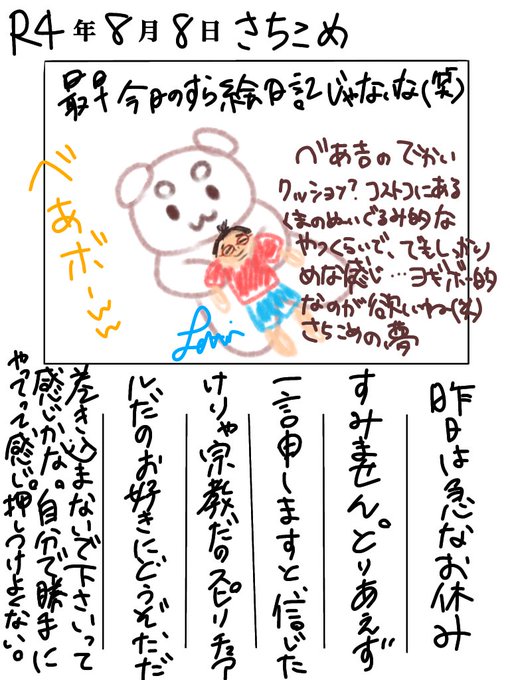 R4年8月8日 さちこめ
最早今日のすら絵日記じゃないな(笑)
べあボーww
べあ吉のでかい
クッション?コストコにある
くまのぬいぐるみ的な
やつくらいで、でもしっかり
めな感じ…ヨギボー的
なのが欲いね(笑)
さちこめの夢
昨日は急なお休み
すみません。とりあえず
一言申しますと、信じた
けりゃ宗教だのスピリチュア
ルだのお好きにどうぞ、ただ
巻き込まないで下さいって
感じかな。自分で勝手に
やってって感じ。押しつけよくない。